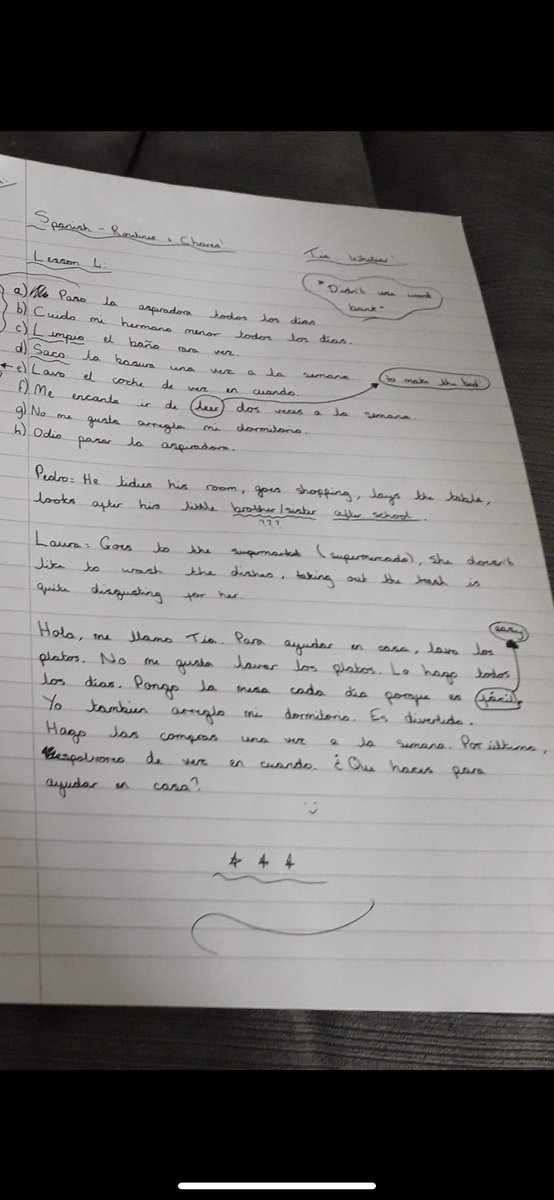 Spanish - Routines + Chores!
Lesson 4:
Tia
"Didn't use word bank"
a) Paso la aspiradora todos los dias
b) Cuido mi hermano menor todos los dias.
c) Limpio el baño rara vez.
d) Saco la basura una vez a la semana
e) Lavo el coche de vez en cuando.
to make the bed
f) Me encanta ir de leer dos veces a la semana.
g) No me gusta arregla mi dormitorio.
h) Odio pasar la aspiradora.
Pedro: He tidies his room, goes shopping, lays the table,
looks after his little brother/sister after school.
???
Laura: Goes to the supermarket (supermercado), she doesn't
like to wash the dishes, taking out the trash is
quite disgusting for her.
easy
Hola, me llamo Tia. Para ayudar en casa, lavo los
platos. No me gusta lavar los platos. Lo hago todos
los dias. Pongo la mesa cada dia porque es fácil.
Yo tambien arreglo mi dormitorio. Es divertido.
Hago las compras una vez a la semana. Por último,
de vez en cuando. ¿Que haces para
ayudar en casa?
:)